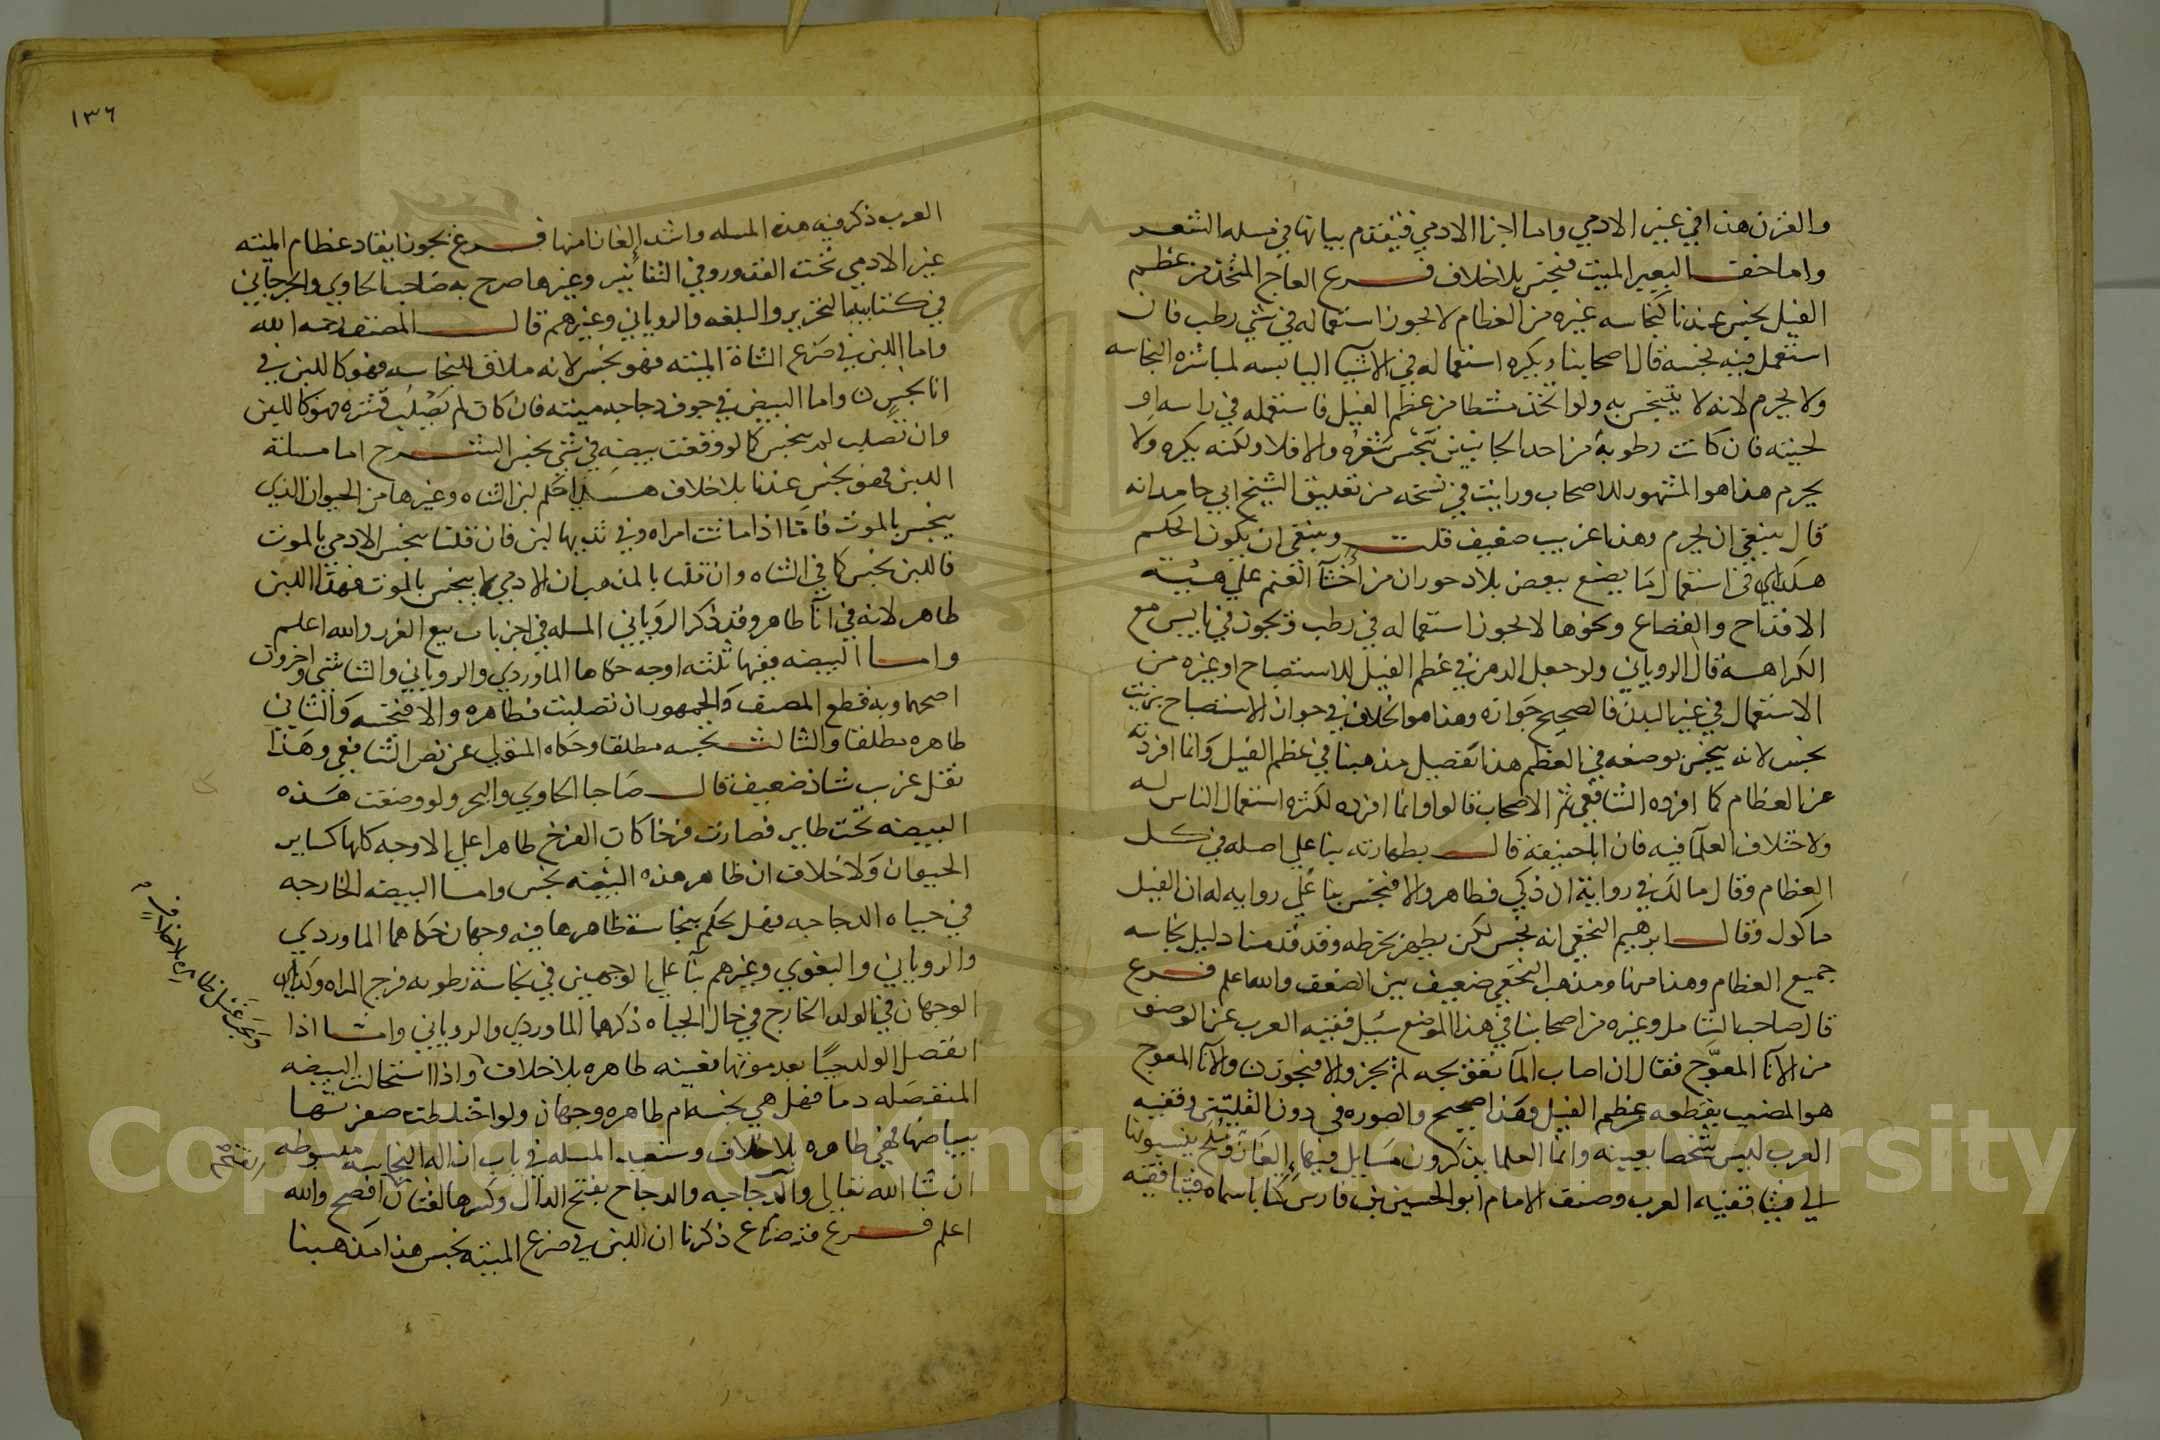 والقرن هذا في غير الادمي واما اجزا الادمي فيقدم بيانها في مسله الشعر
واما خف البعير الميت فنجس بلا خلاف فرع العاج المتخذ من عظم
الفيل نجس عندنا كنجاسه غيره من العظام لا يجوز استعماله في شي رطب فان
استعمل فيه نجسه قال اصحابنا ويكره استعماله في الاشيا اليابسه لمباشره النجاسه
ولا يحرم لانه لا يتنجس به ولو اتخذ مشطا من عظم الفيل فاستعمله في راسه او
لحيته فان كانت رطوبة من احد الجانبين تنجس شعره والا فلا ولكنه يكره ولا
يحرم هذا هو المشهور للاصحاب ورايت في نسخه من تعليق الشيخ ابي حامد انه
قال ينبغي ان يحرم وهذا غريب ضعيف قلت وينبغي ان يكون الحكم
هكذي في استعمال ما يصنع ببعض بلاد حوران من اخثا الغنم علي هيئه
الاقداح والقصاع ونحوها لا يجوز استعماله في رطب ويجوز في يابس مع
الكراهه قال الروياني ولو جعل الدهن في عظم الفيل للاستصباح او غيره من
الاستعمال في غير البدن فالصحيح جوازه وهذا هو الخلاف في جواز الاستصباح بزيت
نجس لانه ينجس بوضعه في العظم هذا تفصيل مذهبنا في عظم الفيل وانما افردته
عن العظام كما افرده الشافعي ثم الاصحاب قالوا وانما افرده لكثره استعمال الناس له
ولاختلاف العلما فيه فان ابا حنيفة قال بطهارته بنا علي اصله في كل
العظام وقال مالك في رواية ان ذكي فطاهر والا فنجس بنا علي روايه له ان الفيل
ماكول وقال ابرهيم النخعي انه نجس لكن يطهر بخرطه وقد قدمنا دليل نجاسه
جميع العظام وهذا منها ومذهب النخعي ضعيف بين الضعف والله اعلم فرع
قال صاحب الشامل وغيره من اصحابنا في هذا الموضع سئل فقيه العرب عن الوضو
من الانا المعوج فقال ان اصاب الما تعويجه لم يجز والا فيجوز ن والانا المعوج
هو المضبب بقطعه عظم الفيل وهذا صحيح والصوره في دون القلتين وفقيه
العرب ليس شخصا بعينه وانما العلما يذكرون مسايل فيها الغاز وملح ينسبونها
الي فتيا فقيه العرب وصنف الامام ابو الحسين بن فارس كتابا سماه فتيا فقيه
١٣٦
العرب ذكر فيه هذه المسله واشد الغازا منها فرع يجوز ايقاد عظام الميته
غير الادمي تحت القدور وفي التنانير وغيرها صرح به صاحب الحاوي والجرجاني
في كتابيه التحرير والبلغه والروياني وغيرهم قال المصنف رحمه الله
واما اللبن في ضرع الشاة الميته فهو نجس لانه ملاق للنجاسه فهو كاللبن في
انا نجس ن واما البيض في جوف دجاجه ميته فان كان لم يصلب قشره فهو كاللبن
وان تصلب لم ينجس كما لو وقعت بيضه في شي نجس الشرح اما مسلة
اللبن فهو نجس عندنا بلا خلاف هذا حكم لبن الشاه وغيرها من الحيوان الذي
ينجس بالموت فاما اذا ماتت امراه وفي ثديها لبن فان قلنا ينجس الادمي بالموت
فاللبن نجس كما في الشاه وان قلنا بالمذهب ان الادمي لا ينجس بالموت فهذا اللبن
طاهر لانه في انا طاهر وقد ذكر الروياني المسله في اخر باب بيع الغرر والله اعلم
واما البيضه ففيها ثلثه اوجه حكاها الماوردي والروياني والشاشي واخرون
اصحها وبه قطع المصنف والجمهور ان تصلبت فطاهره والا فنجسه والثاني
طاهره مطلقا والثالث نجسه مطلقا وحكاه المتولي عن نص الشافعي وهذا
نقل غريب شاذ ضعيف قال صاحبا الحاوي والبحر ولو وضعت هذه
البيضه تحت طاير فصارت فرخا كان الفرخ طاهرا علي الاوجه كلها كساير
الحيوان ولا خلاف ان ظاهر هذه البيضه نجس واما البيضه الخارجه
في حياه الدجاجه فهل يحكم بنجاسة ظاهرها فيه وجهان حكاهما الماوردي
والروياني والبغوي وغيرهم بنا علي الوجهين في نجاسة رطوبه فرج المراه وكذي
الوجهان في الولد الخارج في حال الحياه ذكرهما الماوردي والروياني واما اذا
انفصل الولد حيا بعد موتها فعينه طاهره بلا خلاف واذا استحالت البيضه
المنفصله دما فهل هي نجسه ام طاهره وجهان ولو اختلطت صفرتها
ببياضها فهي طاهره بلا خلاف وسنعيد المسله في باب ازاله النجاسه مبسوطه
ان شا الله تعالي والدجاجه والدجاج بفتح الدال وكسرها لغتان افصح والله
اعلم فرع قد ذكرنا ان اللبن في ضرع الميته نجس هذا مذهبنا
ويجب غسل ظاهره بلا خلاف
الفتح